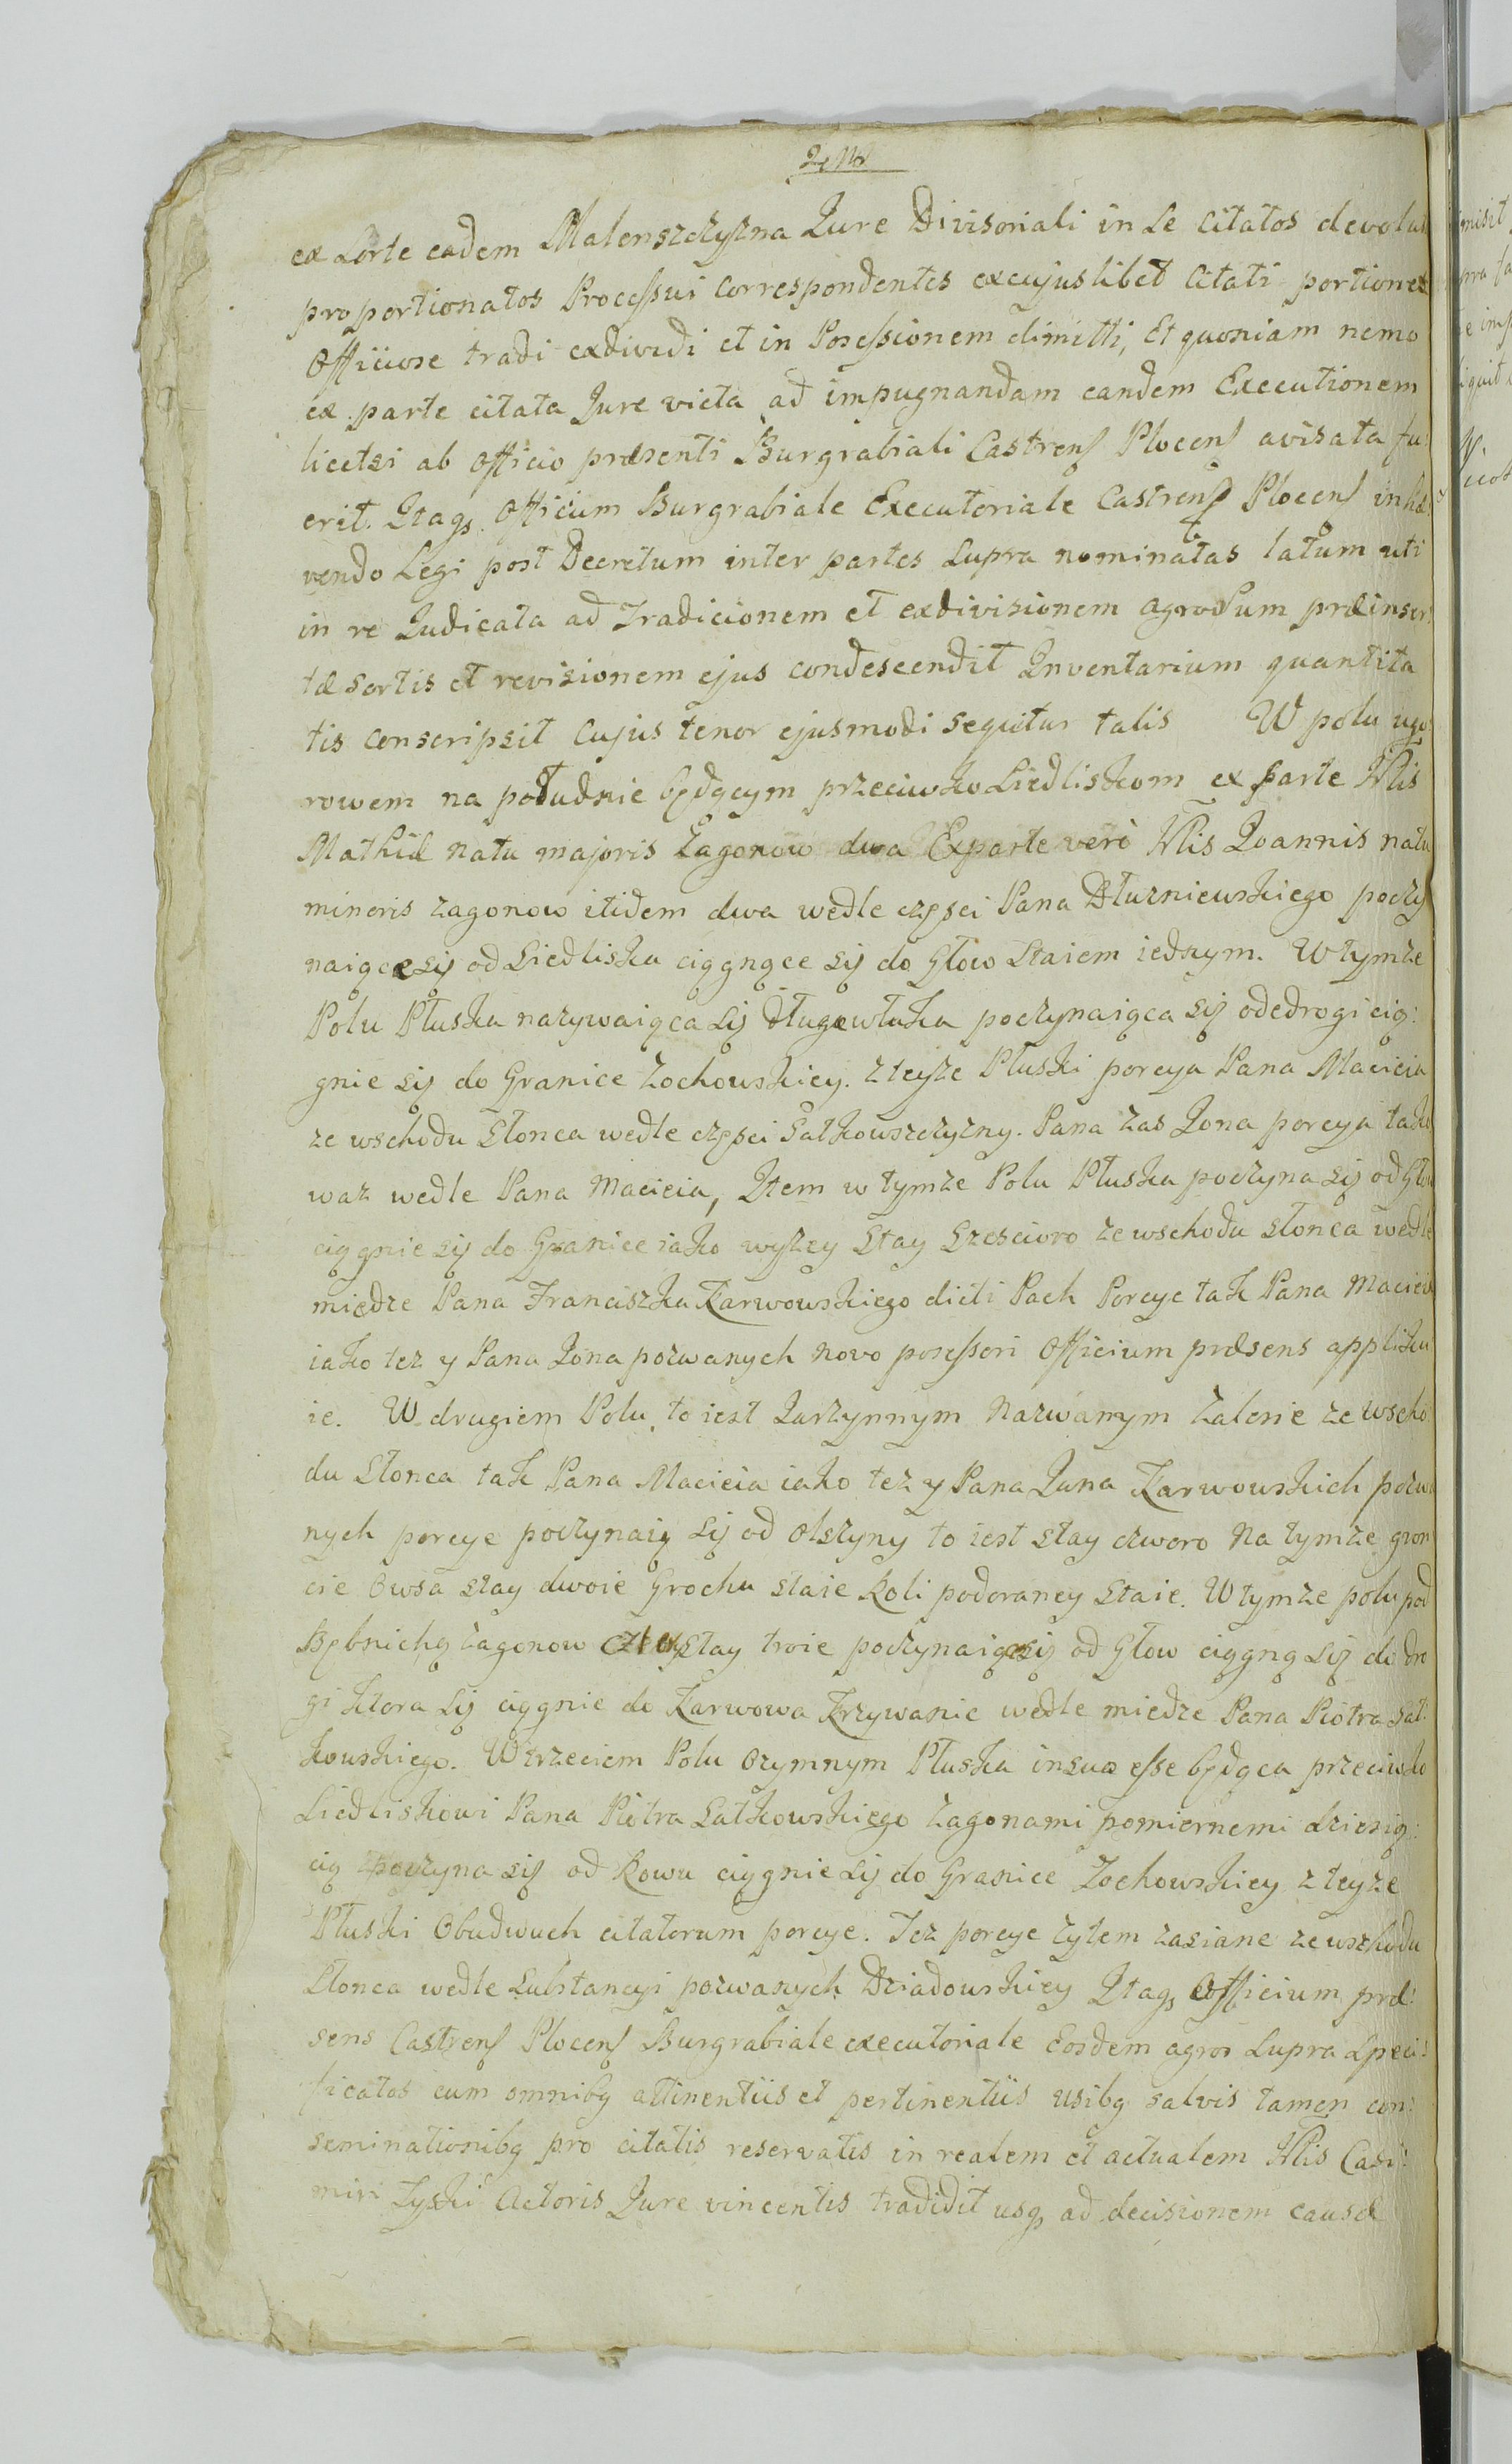 ex Sorte eadem Malenszczyzna Jure Divisoriali in Se Citatos devolut
proportionatos Processui Correspondentes excujuslibet Citati portiones
Officiose tradi exdividi et in Possessionem dimitti, Et quoniam nemo
ex parte citata Jure victa ad impugnandam eandem Executionem
licetsi ab Officio præsenti Burgrabiali Castrens Plocens avisata fu:
erit. Itaq Officium Burgrabiale Executoriale Castrens Plocens inhæ:
rendo Legi post Decretum inter partes Supra nominatas latum uti
in re Judicata ad Tradicionem et exdivisionem agrorum præinser:
tæ Sortis et revisionem ejus condescendit Inventarium quantita
tis conscripsit Cujus tenor ejusmodi sequitur talis W polu ugo:
rowem na południe będącym przeciwko Siedliskom ex parte Nlis
Mathiæ natu majoris Zagonow dwa Exparte verò Nlis Joannis natu
minoris zagonow itidem dwa wedle częsci Pana Dłuzniewskiego poczy
naiące się od Siedliska ciągnące się do Głow Staiem iednym. W tymze
Polu Płuska nazywaiąca się Długowłuka poczynaiąca się odedrogi cią:
gnie się do Granice Zochowskiey. z teyze Płuski porcya Pana Macieia
ze wschodu Słonca wedle częsci Satkowszczyzny. Pana zas Jona porcyia tako
waz wedle Pana Macieia, Item w tymze Polu Płuska poczyna się od Głow
ciągnie się do Granice iako wyzey Stay Szescioro ze wschodu słonca wedle
miedze Pana Franciszka Karwowskiego dicti Pach Porcye tak Pana Macieia
iako tez y Pana Jona pozwanych novo possessori Officium præsens appliku
ie. W drugiem Polu to iest Jarzynnym Nazwanym Zalesie ze wscho
du Słonca tak Pana Macieia iako tez y Pana Jana Karwowskich pozwa
nych porcye poczynaią się od Olszyny to iest stay czworo Na tymze gron
cie Owsa stay dwoie Grochu staie Roli podoraney Staie. W tymze polu pod
Bębnichą zagonow cztery stay troie poczynaiące się od Głow ciągną się do dro
gi ktora się ciągnie do Karwowa Krzywanie wedle miedze Pana Piotra Sat:
kowskiego. W trzeciem Polu Ozymnym Płuska insuo esse będąca przeciwko
Siedliskowi Pana Piotra Satkowskiego Zagonami pomiernemi dziesią:
cią poczyna się od Rowu ciągnie się do Granice Zochowskiey z teyze
Płuski Obudwuch citatorum porcye. Tez porcye zytem zasiane ze wschodu
Słonca wedle Substancyi pozwanych Dziadowskiey Itaq Officium præ:
sens Castrens Plocens Burgrabiale executoriale Eosdem agros Supra Speci:
ficatos cum omnibq attinentiis et pertinentiis usibq salvis tamen con:
seminationibq pro citatis reservatis in realem et actualem Nlis Casi:
miri Zyski Actoris Jure vincentis tradidit usq ad decisionem causæ